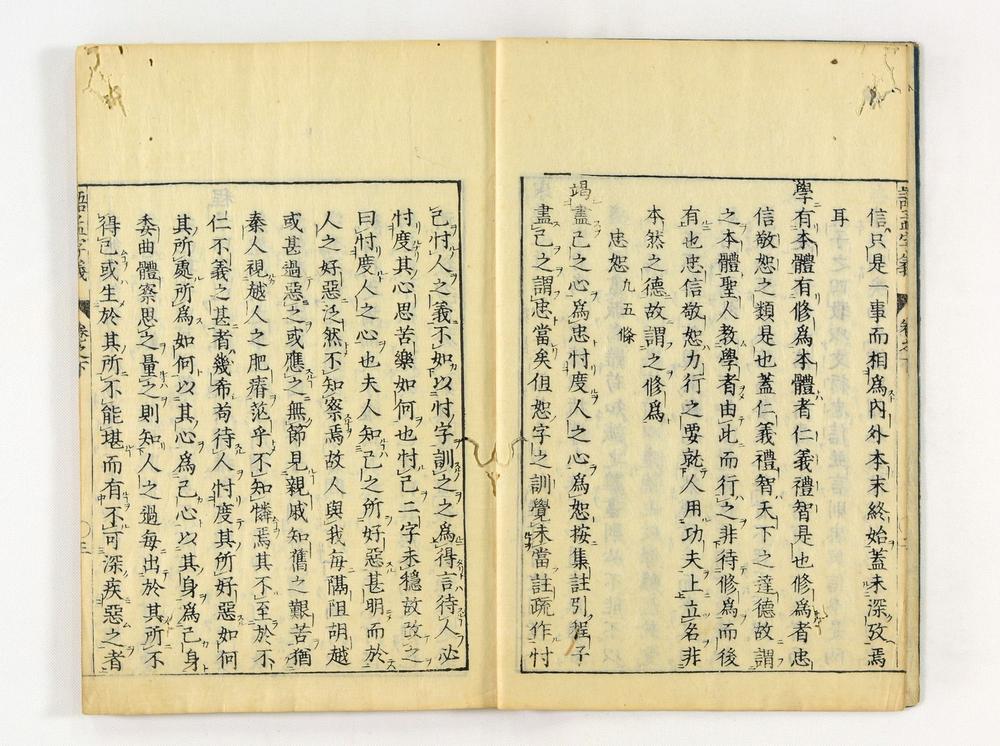 語孟字義 卷之下
信只是一事而相爲內外本末終始蓋未深攷焉
耳
學有本體有修爲本體者仁義禮智是也修爲者忠
信敬恕之類是也蓋仁義禮智天下之達德故謂
之本體聖人教學者由此而行之非待修爲而後
有也忠信敬恕力行之要就人用功夫上立名非
本然之德故謂之修爲
忠恕 九五條
竭盡己之心爲忠忖度人之心爲恕按集註引程子
盡己之謂忠當矣但恕字之訓覺未當註疏作忖
己忖人之義不如以忖字訓之之爲得言待人必
忖度其心思苦樂如何也忖己二字未穩故改之
曰忖度人之心也夫人知己之所好惡甚明而於
人之好惡泛然不知察焉故人與我每隔阻胡越
或甚過惡之或應之無節見親戚知舊之艱苦猶
秦人視越人之肥瘠茫乎不知憐焉其不至於不
仁不義之甚者幾希苟待人忖度其所好惡如何
其所處所爲如何以其心爲己心以其身爲己身
委曲體察思之量之則知人之過每出於其所不
得已或生於其所不能堪而有不可深疾惡之者
語孟字義 卷之下 三